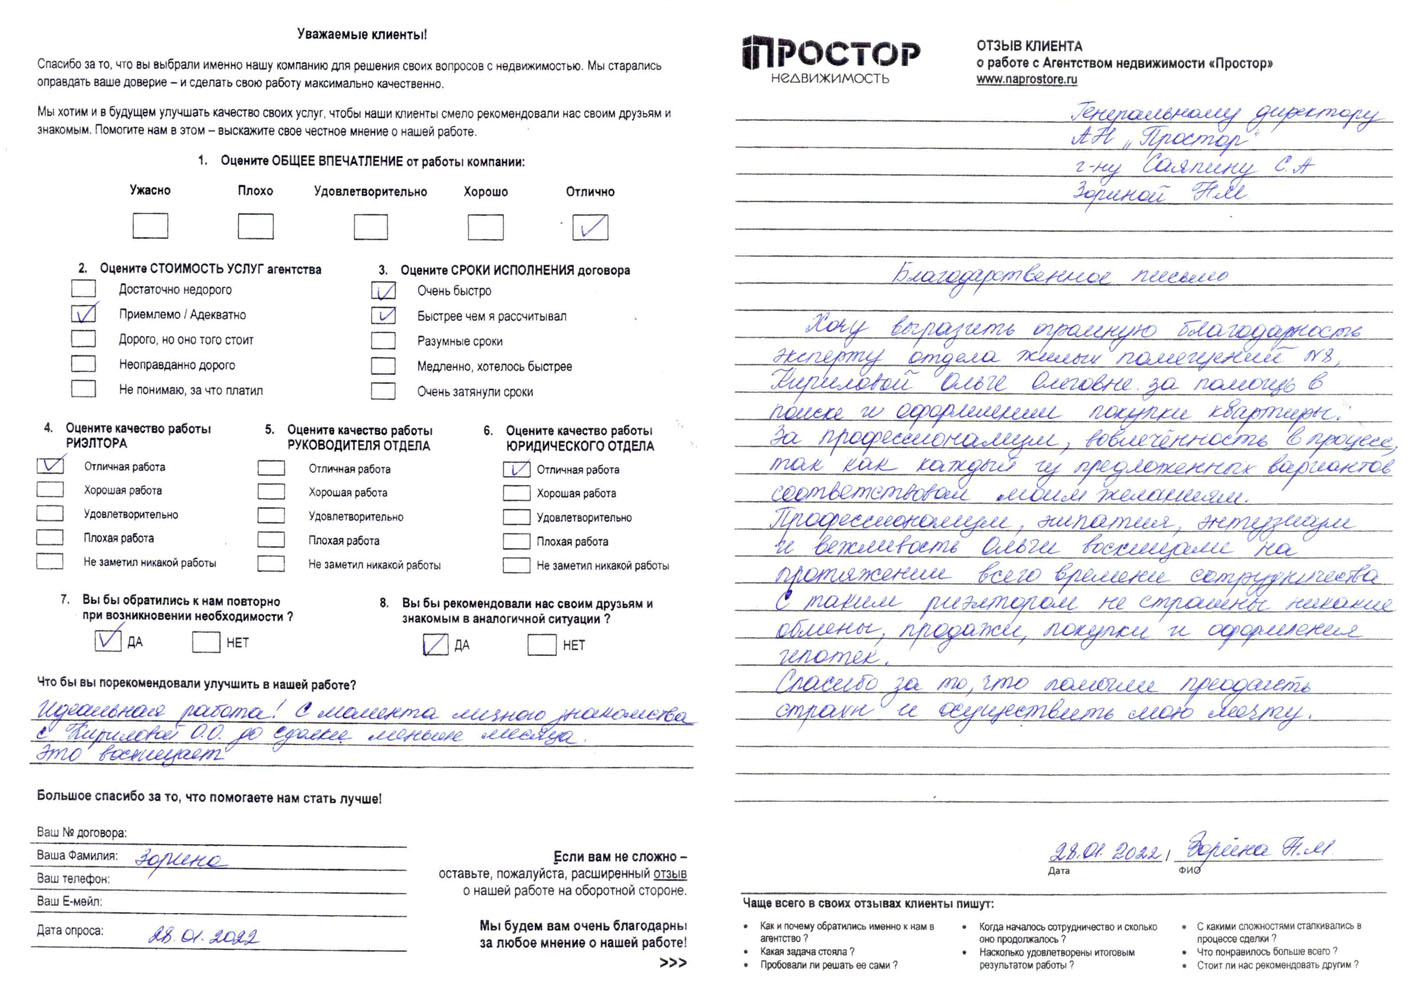 Уважаемые клиенты!
Спасибо за то, что вы выбрали именно нашу компанию для решения своих вопросов с недвижимостью. Мы старались
оправдать ваше доверие – и сделать свою работу максимально качественно.
Мы хотим и в будущем улучшать качество своих услуг, чтобы наши клиенты смело рекомендовали нас своим друзьям и
знакомым. Помогите нам в этом – выскажите свое честное мнение о нашей работе.
1. Оцените ОБЩЕЕ ВПЕЧАТЛЕНИЕ от работы компании:
Ужасно Плохо Удовлетворительно Хорошо Отлично
2. Оцените СТОИМОСТЬ УСЛУГ агентства
Достаточно недорого
Приемлемо / Адекватно
Дорого, но оно того стоит
Неоправданно дорого
Не понимаю, за что платил
3. Оцените СРОКИ ИСПОЛНЕНИЯ договора
Очень быстро
Быстрее чем я рассчитывал
Разумные сроки
Медленно, хотелось быстрее
Очень затянули сроки
4. Оцените качество работы
РИЭЛТОРА
Отличная работа
Хорошая работа
Удовлетворительно
Плохая работа
Не заметил никакой работы
5. Оцените качество работы
РУКОВОДИТЕЛЯ ОТДЕЛА
Отличная работа
Хорошая работа
Удовлетворительно
Плохая работа
Не заметил никакой работы
6. Оцените качество работы
ЮРИДИЧЕСКОГО ОТДЕЛА
Отличная работа
Хорошая работа
Удовлетворительно
Плохая работа
Не заметил никакой работы
7. Вы бы обратились к нам повторно
при возникновении необходимости ?
ДА НЕТ
8. Вы бы рекомендовали нас своим друзьям и
знакомым в аналогичной ситуации ?
ДА НЕТ
Что бы вы порекомендовали улучшить в нашей работе?
Идеальная работа! С момента личного знакомства
с Кириловой О.О. до сделки меньше месяца.
Это восхищает
Большое спасибо за то, что помогаете нам стать лучше!
Ваш № договора:
Ваша Фамилия: Зорина
Ваш телефон:
Ваш Е-мейл:
Дата опроса: 28.01.2022
Если вам не сложно –
оставьте, пожалуйста, расширенный отзыв
о нашей работе на оборотной стороне.
Мы будем вам очень благодарны
за любое мнение о нашей работе!
>>>
ПРОСТОР
НЕДВИЖИМОСТЬ
ОТЗЫВ КЛИЕНТА
о работе с Агентством недвижимости «Простор»
www.naprostore.ru
Генеральному директору
АН „Простор"
г-ну Саяпину С.А
Зориной Н.М
Благодарственное письмо
Хочу выразить огромную благодарность
эксперту отдела жилых помещений №8,
Кириловой Ольге Олеговне за помощь в
поиске и оформлении покупки квартиры.
За профессионализм, вовлечённость в процесс,
так как каждый из предложенных вариантов
соответствовал моим желаниям.
Профессионализм, эмпатия, энтузиазм
и вежливость Ольги восхищали на
протяжении всего времени сотрудничества
С таким риэлтором не страшны никакие
обмены, продажи, покупки и оформления
ипотек.
Спасибо за то, что помогли преодолеть
страхи и осуществить мою мечту.
28.01.2022, Зорина Н.М.
Дата ФИО
Чаще всего в своих отзывах клиенты пишут:
• Как и почему обратились именно к нам в
агентство ?
• Какая задача стояла ?
• Пробовали ли решать ее сами ?
• Когда началось сотрудничество и сколько
оно продолжалось ?
• Насколько удовлетворены итоговым
результатом работы ?
• С какими сложностями сталкивались в
процессе сделки ?
• Что понравилось больше всего ?
• Стоит ли нас рекомендовать другим ?